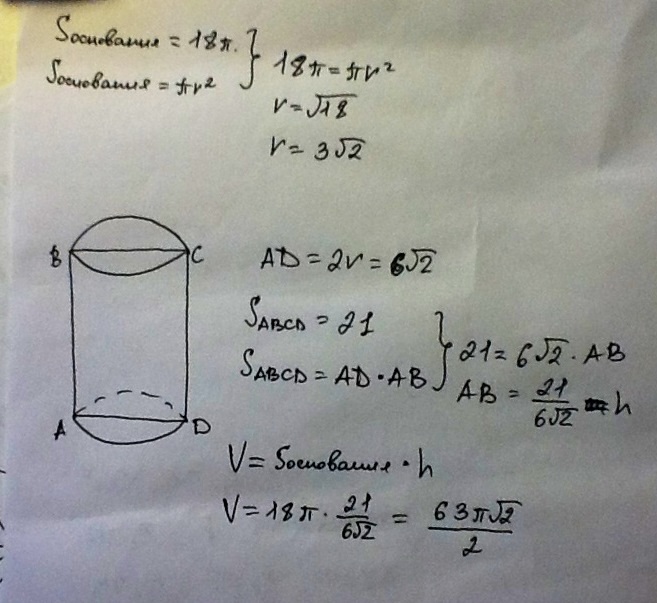 Sоснования = 18π.
Sоснования = πr²
18π = πr²
r = √18
r = 3√2
B C
A D
AD = 2r = 6√2
S_ABCD = 21
S_ABCD = AD · AB
21 = 6√2 · AB
AB = 21/6√2 = h
V = Sоснования · h
V = 18π · 21/6√2 = 63π√2/2